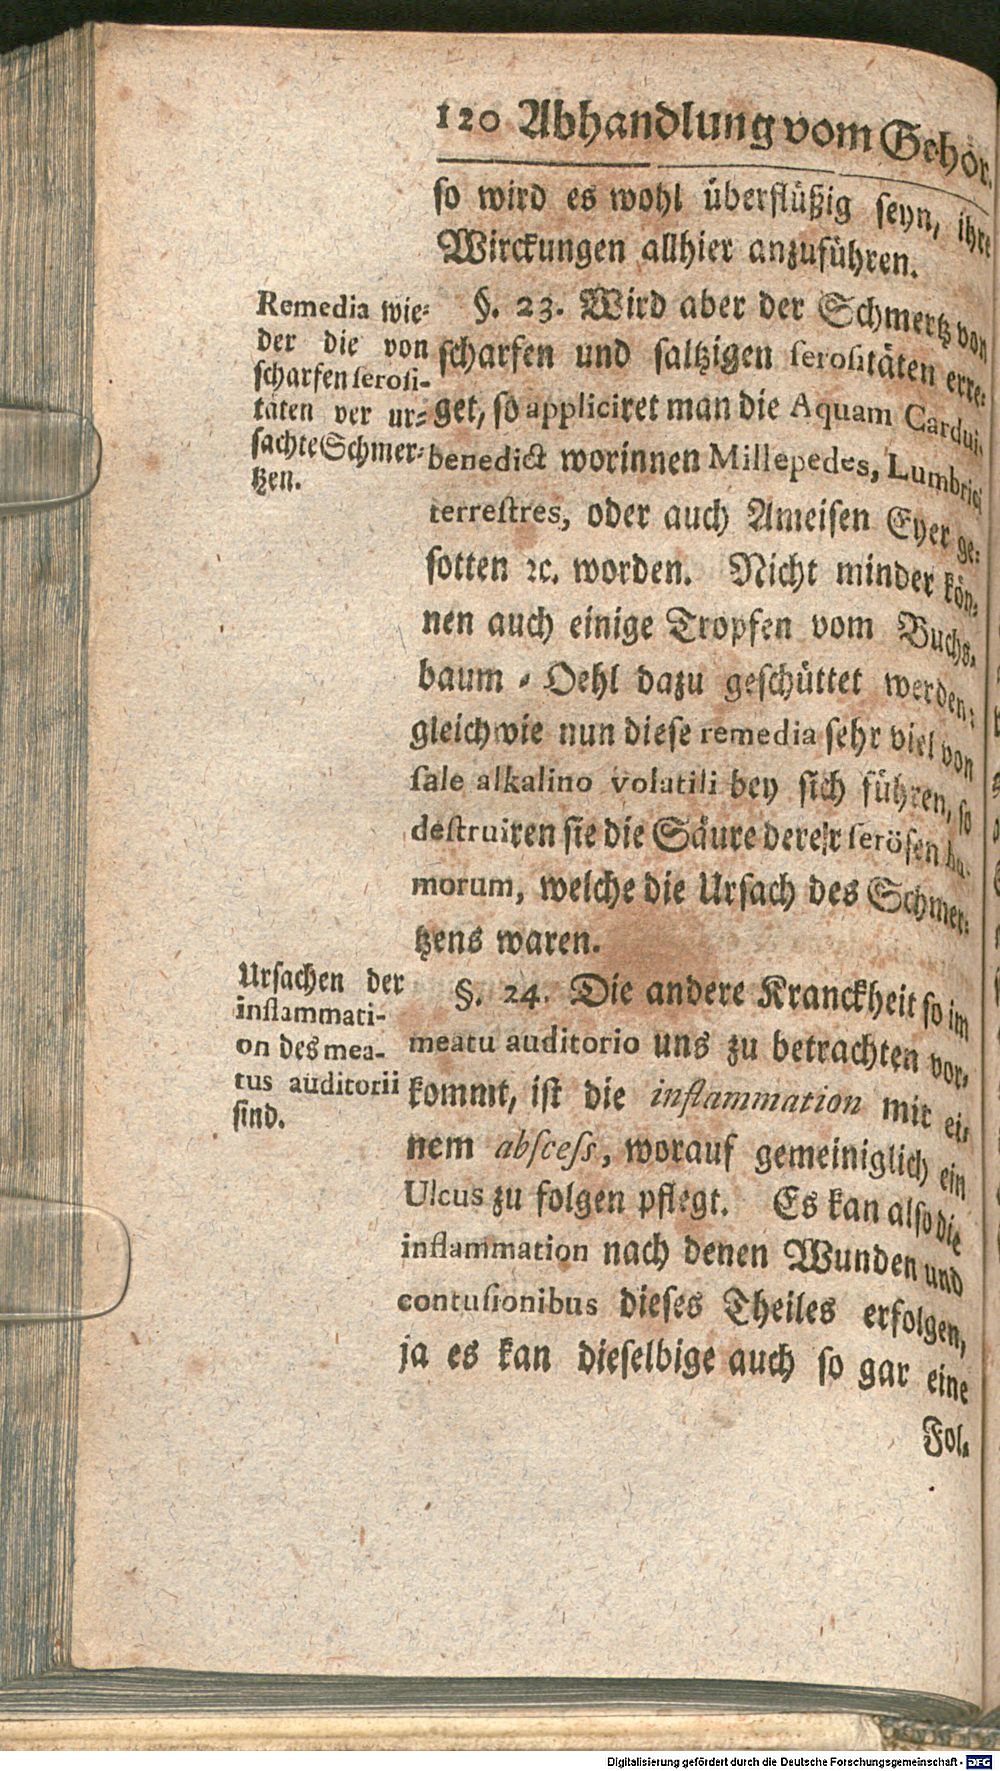 120 Abhandlung vom Gehör.
so wird es wohl überflüßig seyn, ihre
Wirckungen allhier anzuführen.
Remedia wie-
der die von
scharfen serosi-
täten ver ur-
sachte Schmer-
tzen.
§. 23. Wird aber der Schmertz von
scharfen und saltzigen serositäten erre-
get, so appliciret man die Aquam Cardui
benedict worinnen Millepedes, Lumbrici
terrestres, oder auch Ameisen Eyer ge-
sotten ꝛc. worden. Nicht minder kön-
nen auch einige Tropfen vom Buchs-
baum-Oehl dazu geschüttet werden;
gleichwie nun diese remedia sehr viel von
sale alkalino volatili bey sich führen, so
destruiren sie die Säure derer serösen hu-
morum, welche die Ursach des Schmer-
tzens waren.
Ursachen der
inflammati-
on des mea-
tus auditorii
sind.
§. 24. Die andere Kranckheit so im
meatu auditorio uns zu betrachten vor-
kommt, ist die inflammation mit ei-
nem abscess, worauf gemeiniglich ein
Ulcus zu folgen pflegt. Es kan also die
inflammation nach denen Wunden und
contusionibus dieses Theiles erfolgen,
ja es kan dieselbige auch so gar eine
Fol-
Digitalisierung gefördert durch die Deutsche Forschungsgemeinschaft - DFG